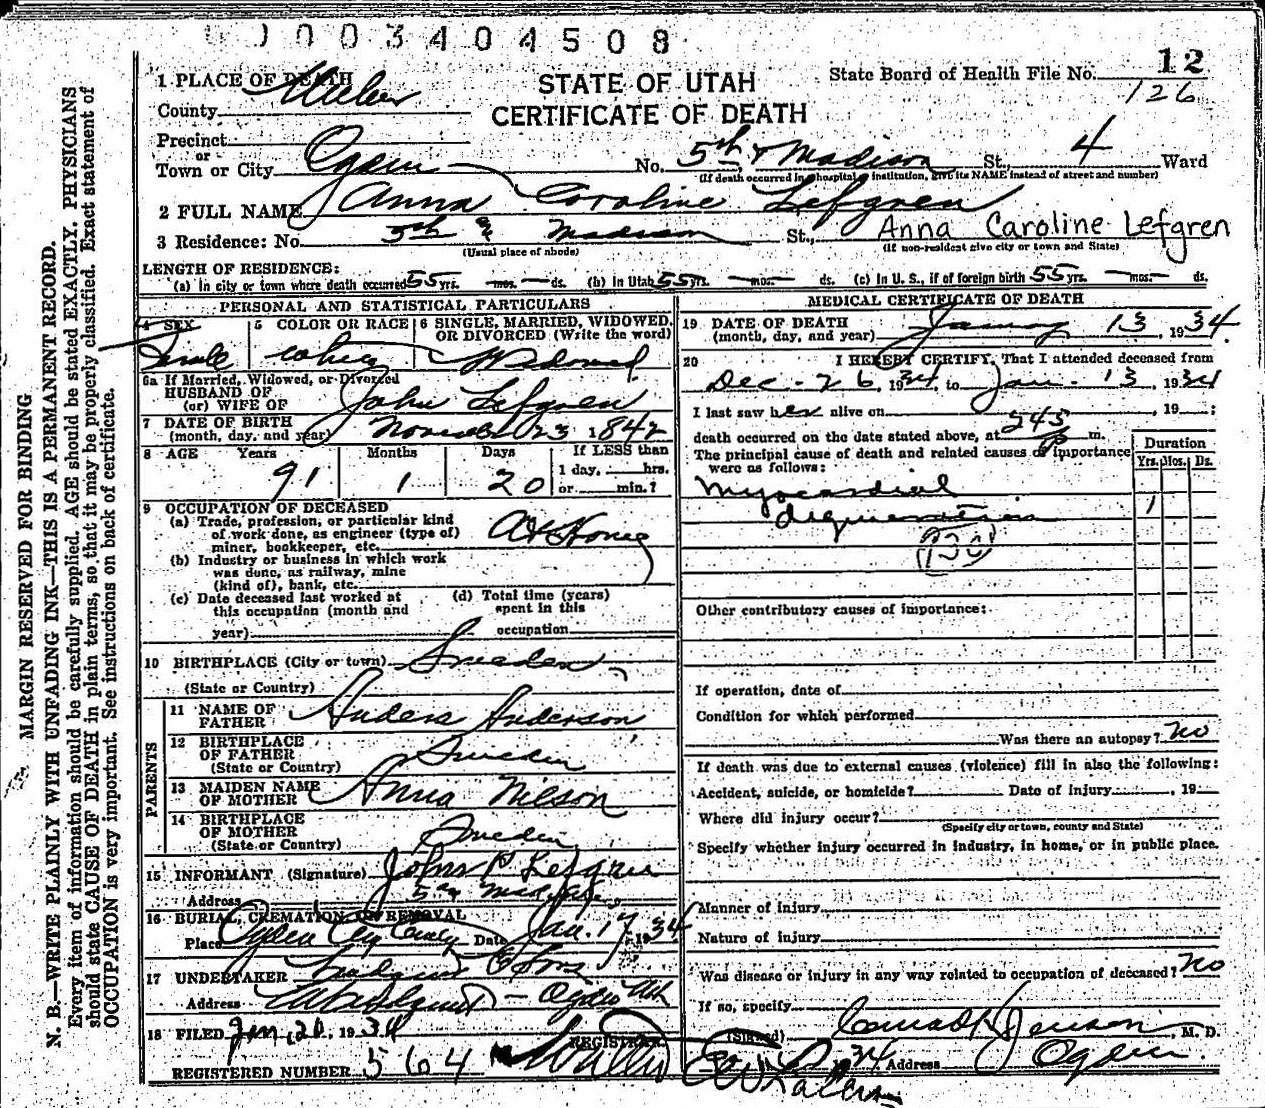 0003404508
12
1 PLACE OF DEATH
STATE OF UTAH
State Board of Health File No.
126
County Weber
CERTIFICATE OF DEATH
Precinct
or
Town or City Ogden No. 5th & Madison St., 4 Ward
(If death occurred in hospital or institution, give its NAME instead of street and number)
2 FULL NAME Anna Caroline Lefgren
3 Residence: No. 5th & Madison St., Anna Caroline Lefgren
(Usual place of abode) (If non-resident give city or town and State)
LENGTH OF RESIDENCE:
(a) In city or town where death occurred 55 yrs. — mos. — ds. (b) In Utah 55 yrs. — mos. — ds. (c) In U. S., if of foreign birth 55 yrs. — mos. — ds.
PERSONAL AND STATISTICAL PARTICULARS
4 SEX
Female
5 COLOR OR RACE
white
6 SINGLE, MARRIED, WIDOWED,
OR DIVORCED (Write the word)
Widowed
6a If Married, Widowed, or Divorced
HUSBAND OF
(or) WIFE OF John Lefgren
7 DATE OF BIRTH
(month, day, and year) November 23 1842
8 AGE Years Months Days If LESS than
1 day, hrs.
or min.?
91 1 20
9 OCCUPATION OF DECEASED
(a) Trade, profession, or particular kind
of work done, as engineer (type of)
miner, bookkeeper, etc. At Home
(b) Industry or business in which work
was done, as railway, mine
(kind of), bank, etc.
(c) Date deceased last worked at
this occupation (month and
year)
(d) Total time (years)
spent in this
occupation
10 BIRTHPLACE (City or town) Sweden
(State or Country)
PARENTS
11 NAME OF
FATHER Anders Anderson
12 BIRTHPLACE
OF FATHER Sweden
(State or Country)
13 MAIDEN NAME
OF MOTHER Anna Nilson
14 BIRTHPLACE
OF MOTHER Sweden
(State or Country)
15 INFORMANT (Signature) John P Lefgren
Address 5th & Madison
16 BURIAL, CREMATION, OR REMOVAL
Place Ogden City Cemetery Date Jan. 17 1934
17 UNDERTAKER Lindquist & Sons
Address Ogden Utah
18 FILED Jan. 20, 1934
REGISTRAR
REGISTERED NUMBER 564
MEDICAL CERTIFICATE OF DEATH
19 DATE OF DEATH
(month, day, and year) January 13, 1934.
20 I HEREBY CERTIFY, That I attended deceased from
Dec - 26, 1934 to Jan. 13, 1934
I last saw her alive on , 19 ;
death occurred on the date stated above, at 245 P m.
The principal cause of death and related causes of importance
were as follows:
Duration
Yrs. Mos. Ds.
Myocardial
degeneration 1
Other contributory causes of importance:
If operation, date of
Condition for which performed
Was there an autopsy? no
If death was due to external causes (violence) fill in also the following:
Accident, suicide, or homicide? Date of injury , 19
Where did injury occur?
(Specify city or town, county and State)
Specify whether injury occurred in industry, in home, or in public place.
Manner of injury
Nature of injury
Was disease or injury in any way related to occupation of deceased? no
If so, specify
(Signed) Conrad H Jenson, M. D.
34 Address Ogden.
MARGIN RESERVED FOR BINDING
N. B.—WRITE PLAINLY WITH UNFADING INK—THIS IS A PERMANENT RECORD.
Every item of information should be carefully supplied. AGE should be stated EXACTLY. PHYSICIANS
should state CAUSE OF DEATH in plain terms, so that it may be properly classified. Exact statement of
OCCUPATION is very important. See instructions on back of certificate.